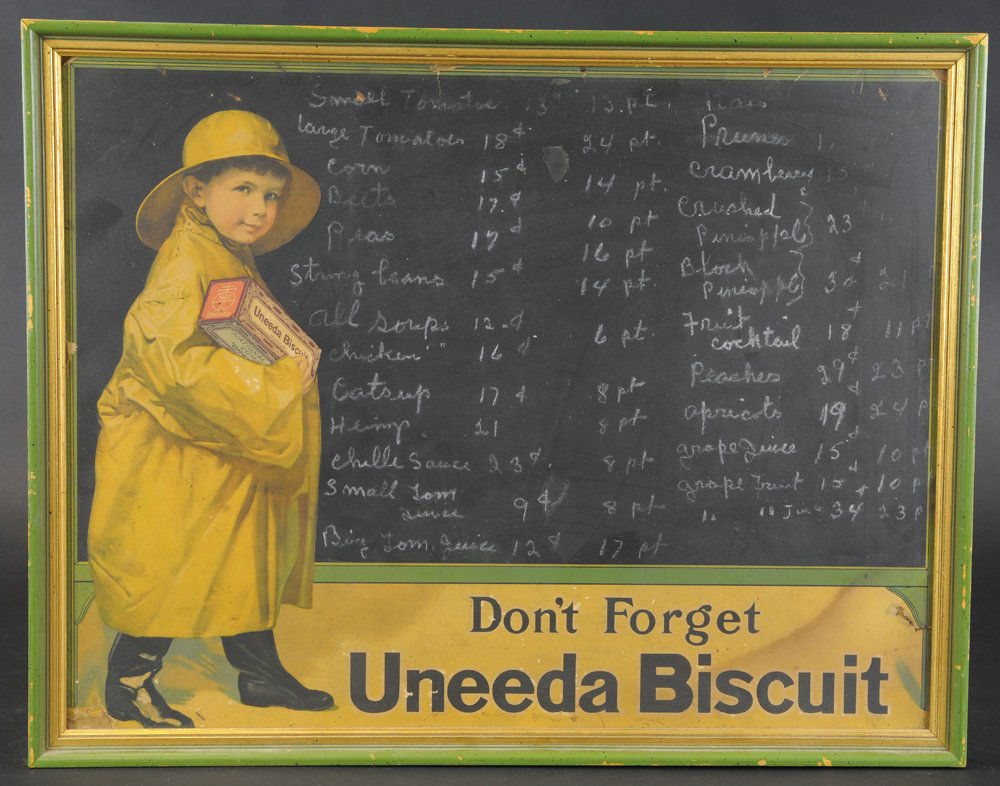 Small Tomatoe 13¢ 13 pt.
large Tomatoes 18¢ 24 pt.
Corn 15¢ 14 pt.
Beets 17¢ 10 pt
Peas 17¢ 16 pt
String beans 15¢ 14 pt
all Soups 12¢ 6 pt
chicken " 16¢
Catsup 17¢ 8 pt
21 8 pt
Chille Sauce 23¢ 8 pt
Small Tom
9¢ 8 pt
Big Tom. Juice 12¢ 17 pt
Prunes
Cramberry 15
Crushed
Pineappl } 23
Block
Pineappl } 30¢ 21 P
Fruit
cocktail 18¢ 11 pt
Peaches 29¢ 23 P
apricots 19¢ 24 P
grape Juice 15¢ 10 pt
grape Fruit 15¢ 10 P
" " Juice 34¢ 23 P
Uneeda Biscuit
Don't Forget
Uneeda Biscuit